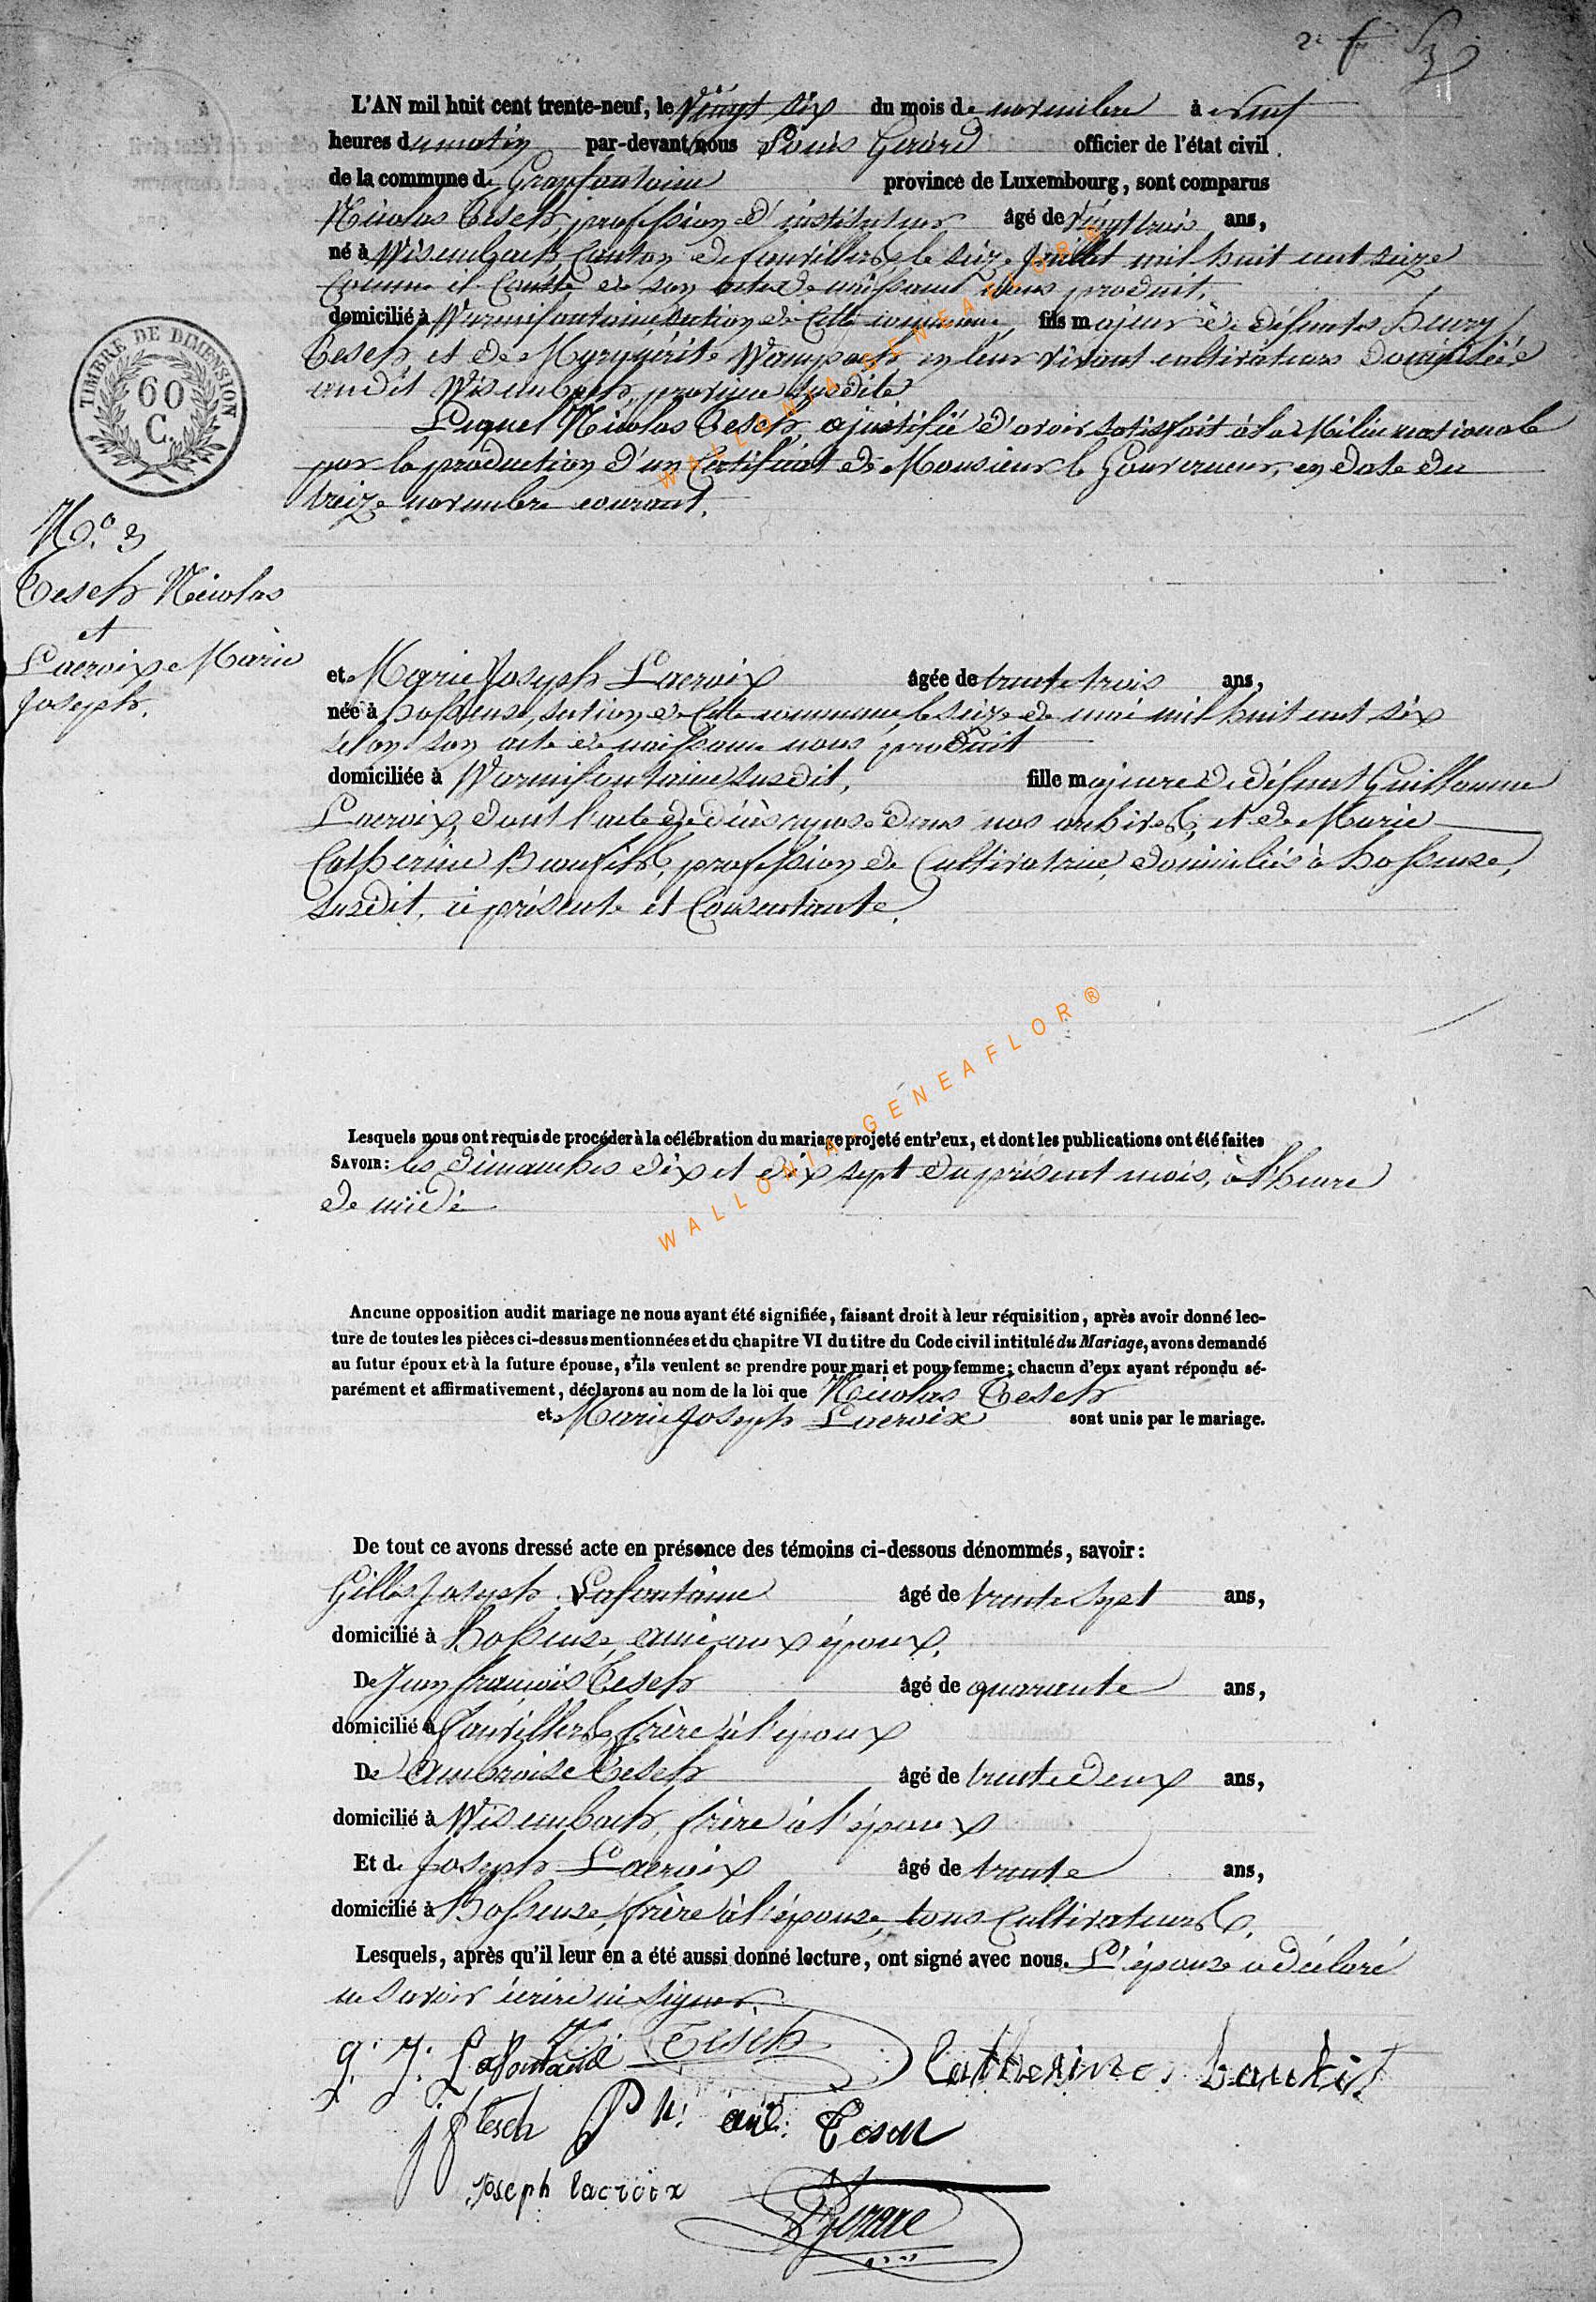 L'AN mil huit cent trente-neuf, le vingt six du mois de novembre à neuf
heures du matin par-devant nous Louis Gérard officier de l'état civil
de la commune de Grapfontaine province de Luxembourg, sont comparus
Nicolas Tesch, profession d'instituteur âgé de vingt trois ans,
né à Wisembach Canton de fauvillers, le seize Juillet mil huit cent seize
Comme il Conste de son acte de naissance nous produit,
domicilié à Warmifontaine, section de Cette commune, fils majeur de défunts henry
Tesch et de Marguérite Wampach en leur vivant cultivateurs domiciliés
audit Wisembach, province susdite
TIMBRE DE DIMENSION
60
C.
Lequel Nicolas Tesch a justifié d'avoir satisfait à la Milice nationale
par la production d'un Certificat de Monsieur le Gouverneur, en date du
treize novembre courant.
N.o 3
Tesch Nicolas
et
Lacroix Marie
Joseph.
et Marie Joseph Lacroix âgée de trente trois ans,
née à hosseuse, section de Cette commune, le seize de mai mil huit cent six
selon son acte de naissance nous produit
domiciliée à Warmifontaine susdit, fille majeure de défunt Guillaume
Lacroix, dont l'acte de décès repose dans nos archives, et de Marie
Catherine Beaufils, profession de Cultivatrice, domiciliés à hosseuse,
susdit, ci présente et Consentante.
WALLONIA-GENEAFLOR®
Lesquels nous ont requis de procéder à la célébration du mariage projeté entr'eux, et dont les publications ont été faites
SAVOIR: les dimanches dix et dix sept du présent mois, à l'heure
de midi
WALLONIA-GENEAFLOR®
Aucune opposition audit mariage ne nous ayant été signifiée, faisant droit à leur réquisition, après avoir donné lec-
ture de toutes les pièces ci-dessus mentionnées et du chapitre VI du titre du Code civil intitulé du Mariage, avons demandé
au futur époux et à la future épouse, s'ils veulent se prendre pour mari et pour femme; chacun d'eux ayant répondu sé-
parément et affirmativement, déclarons au nom de la loi que Nicolas Tesch
et Marie Joseph Lacroix sont unis par le mariage.
De tout ce avons dressé acte en présence des témoins ci-dessous dénommés, savoir:
Gilles Joseph Lafontaine âgé de trente sept ans,
domicilié à hosseuse, ami aux époux.
De Jean françois Tesch âgé de quarante ans,
domicilié à fauvillers, frère à l'époux
De Ambroise Tesch âgé de trente deux ans,
domicilié à Wisembach, frère à l'époux
Et de Joseph Lacroix âgé de trente ans,
domicilié à hosseuse, frère à l'épouse, tous Cultivateurs.
Lesquels, après qu'il leur en a été aussi donné lecture, ont signé avec nous. L'épouse a déclaré
ne savoir écrire ni signer.
g. J. Lafontaine Tesch Catherine baufis
j f tesch Tesch
Joseph lacroix
Gerard